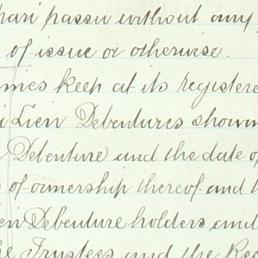 pari passu without any
of issue or otherwise.
times keep at its registere
Lien Debentures shown
Debenture and the date of
of ownership thereof and t
ien Debenture holders and
he Trustees and the Reg